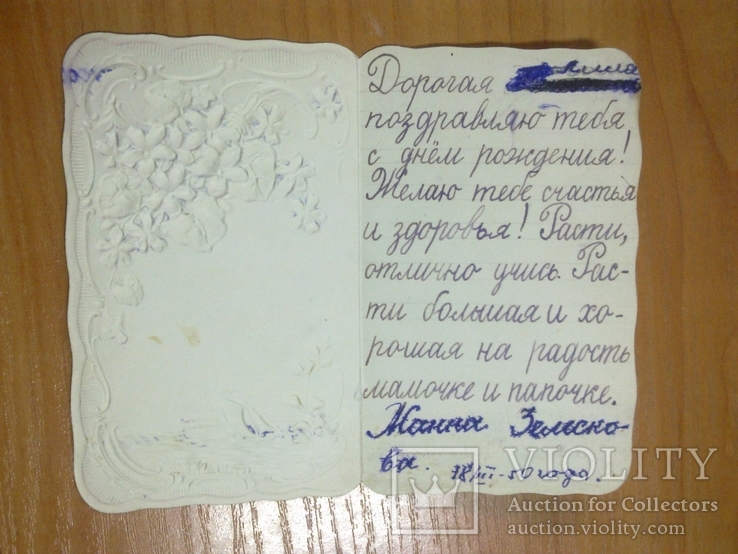 Дорогая
поздравляю тебя
с днём рождения!
Желаю тебе счастья
и здоровья! Расти,
отлично учись. Рас-
ти большая и хо-
рошая на радость
мамочке и папочке.
Жанна
18/III-50 года.
VIOLITY
Auction for Collectors
auction.violity.com